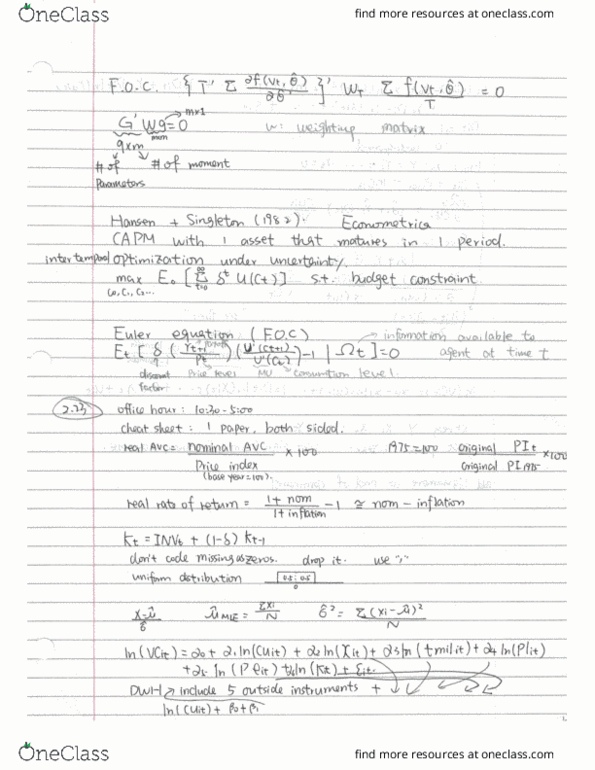 OneClass
find more resources at oneclass.com
F.O.C. { T' Σ ∂f(Vt, θ̂)/∂θ' }' WT Σ f(Vt, θ̂)/T = 0
G'Wg = 0 m×1 w: weighting matrix
m×m
q×m
# of # of moment
Parameters
Hansen + Singleton (1982). Econometrica
CAPM with 1 asset that matures in 1 period.
intertemporal optimization under uncertainty.
max E0 [ Σ t=0 ∞ δ^t U(Ct) ] s.t. budget constraint.
C0, C1, C2...
Euler equation (F.O.C) → information available to
Et [ δ ( rt+1 / Pt ) ( U'(Ct+1) / U'(Ct) ) - 1 | Ωt ] = 0 agent at time t
discount Price level MU consumption level.
factor
2.23 office hour: 10:30 - 5:00
cheat sheet: 1 paper, both sided.
real AVC = nominal AVC / Price index × 100 1975=100 original PIt / original PI 1975 × 100
(base year=100).
real rate of return = 1+ nom / 1+ inflation - 1 ≅ nom - inflation
Kt = INVt + (1-δ) Kt-1
don't code missing as zeros. drop it. use "."
uniform distribution
0
x-û / σ̂ ûMLE = Σxi / N σ̂² = Σ(xi-û)² / N
ln(VCit) = α0 + α1 ln(Cuit) + α2 ln(Xit) + α3 ln(tmilit) + α4 ln(Plit)
+ α5 ln(Peit) + α6 ln(Kit) + εit.
DWH → include 5 outside instruments +
ln(Cuit) + β0 + β1
OneClass
find more resources at oneclass.com